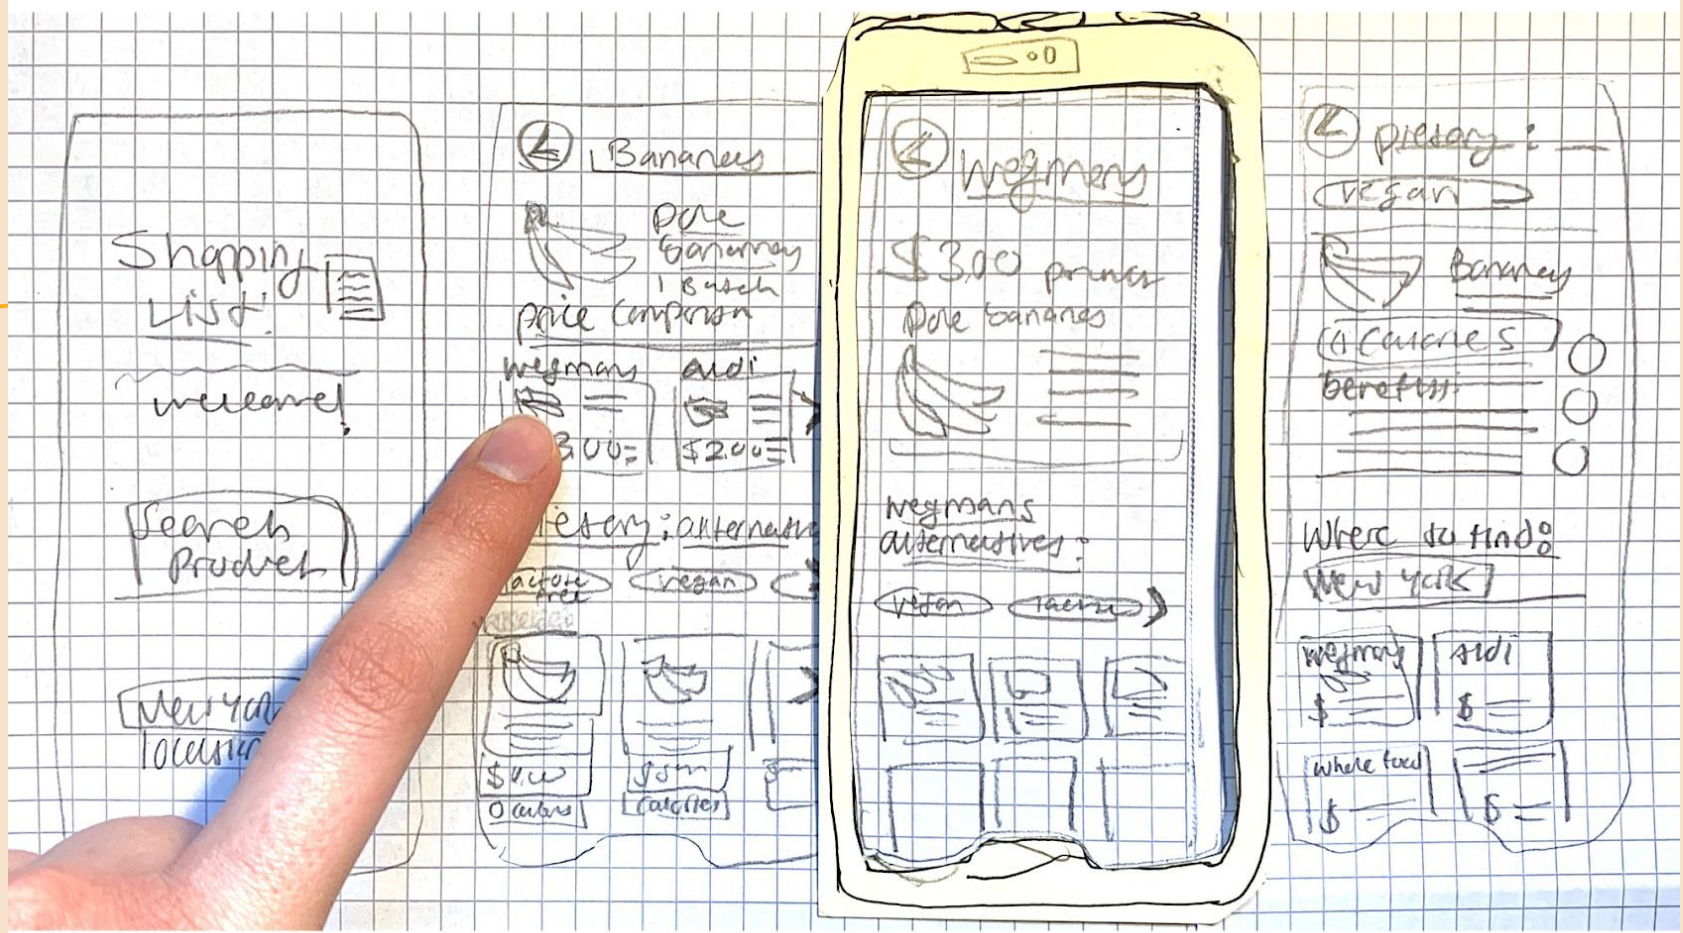 Shopping
List!
welcome!
Search
Product
New York
location
Bananas
Dole
Bananas
1 Batch
price comparison
wegmans aldi
3.00 $2.00
ietary: alternativ
lactose
free
vegan
$
0 calories
$
calories
Wegmans
$3.00
Dole bananas
wegmans
alternatives:
vegan lactose
Dietary:
vegan
Bananas
calories
benefits:
Where to find:
New York
Wegmans Aldi
$ $
whole food
$ $